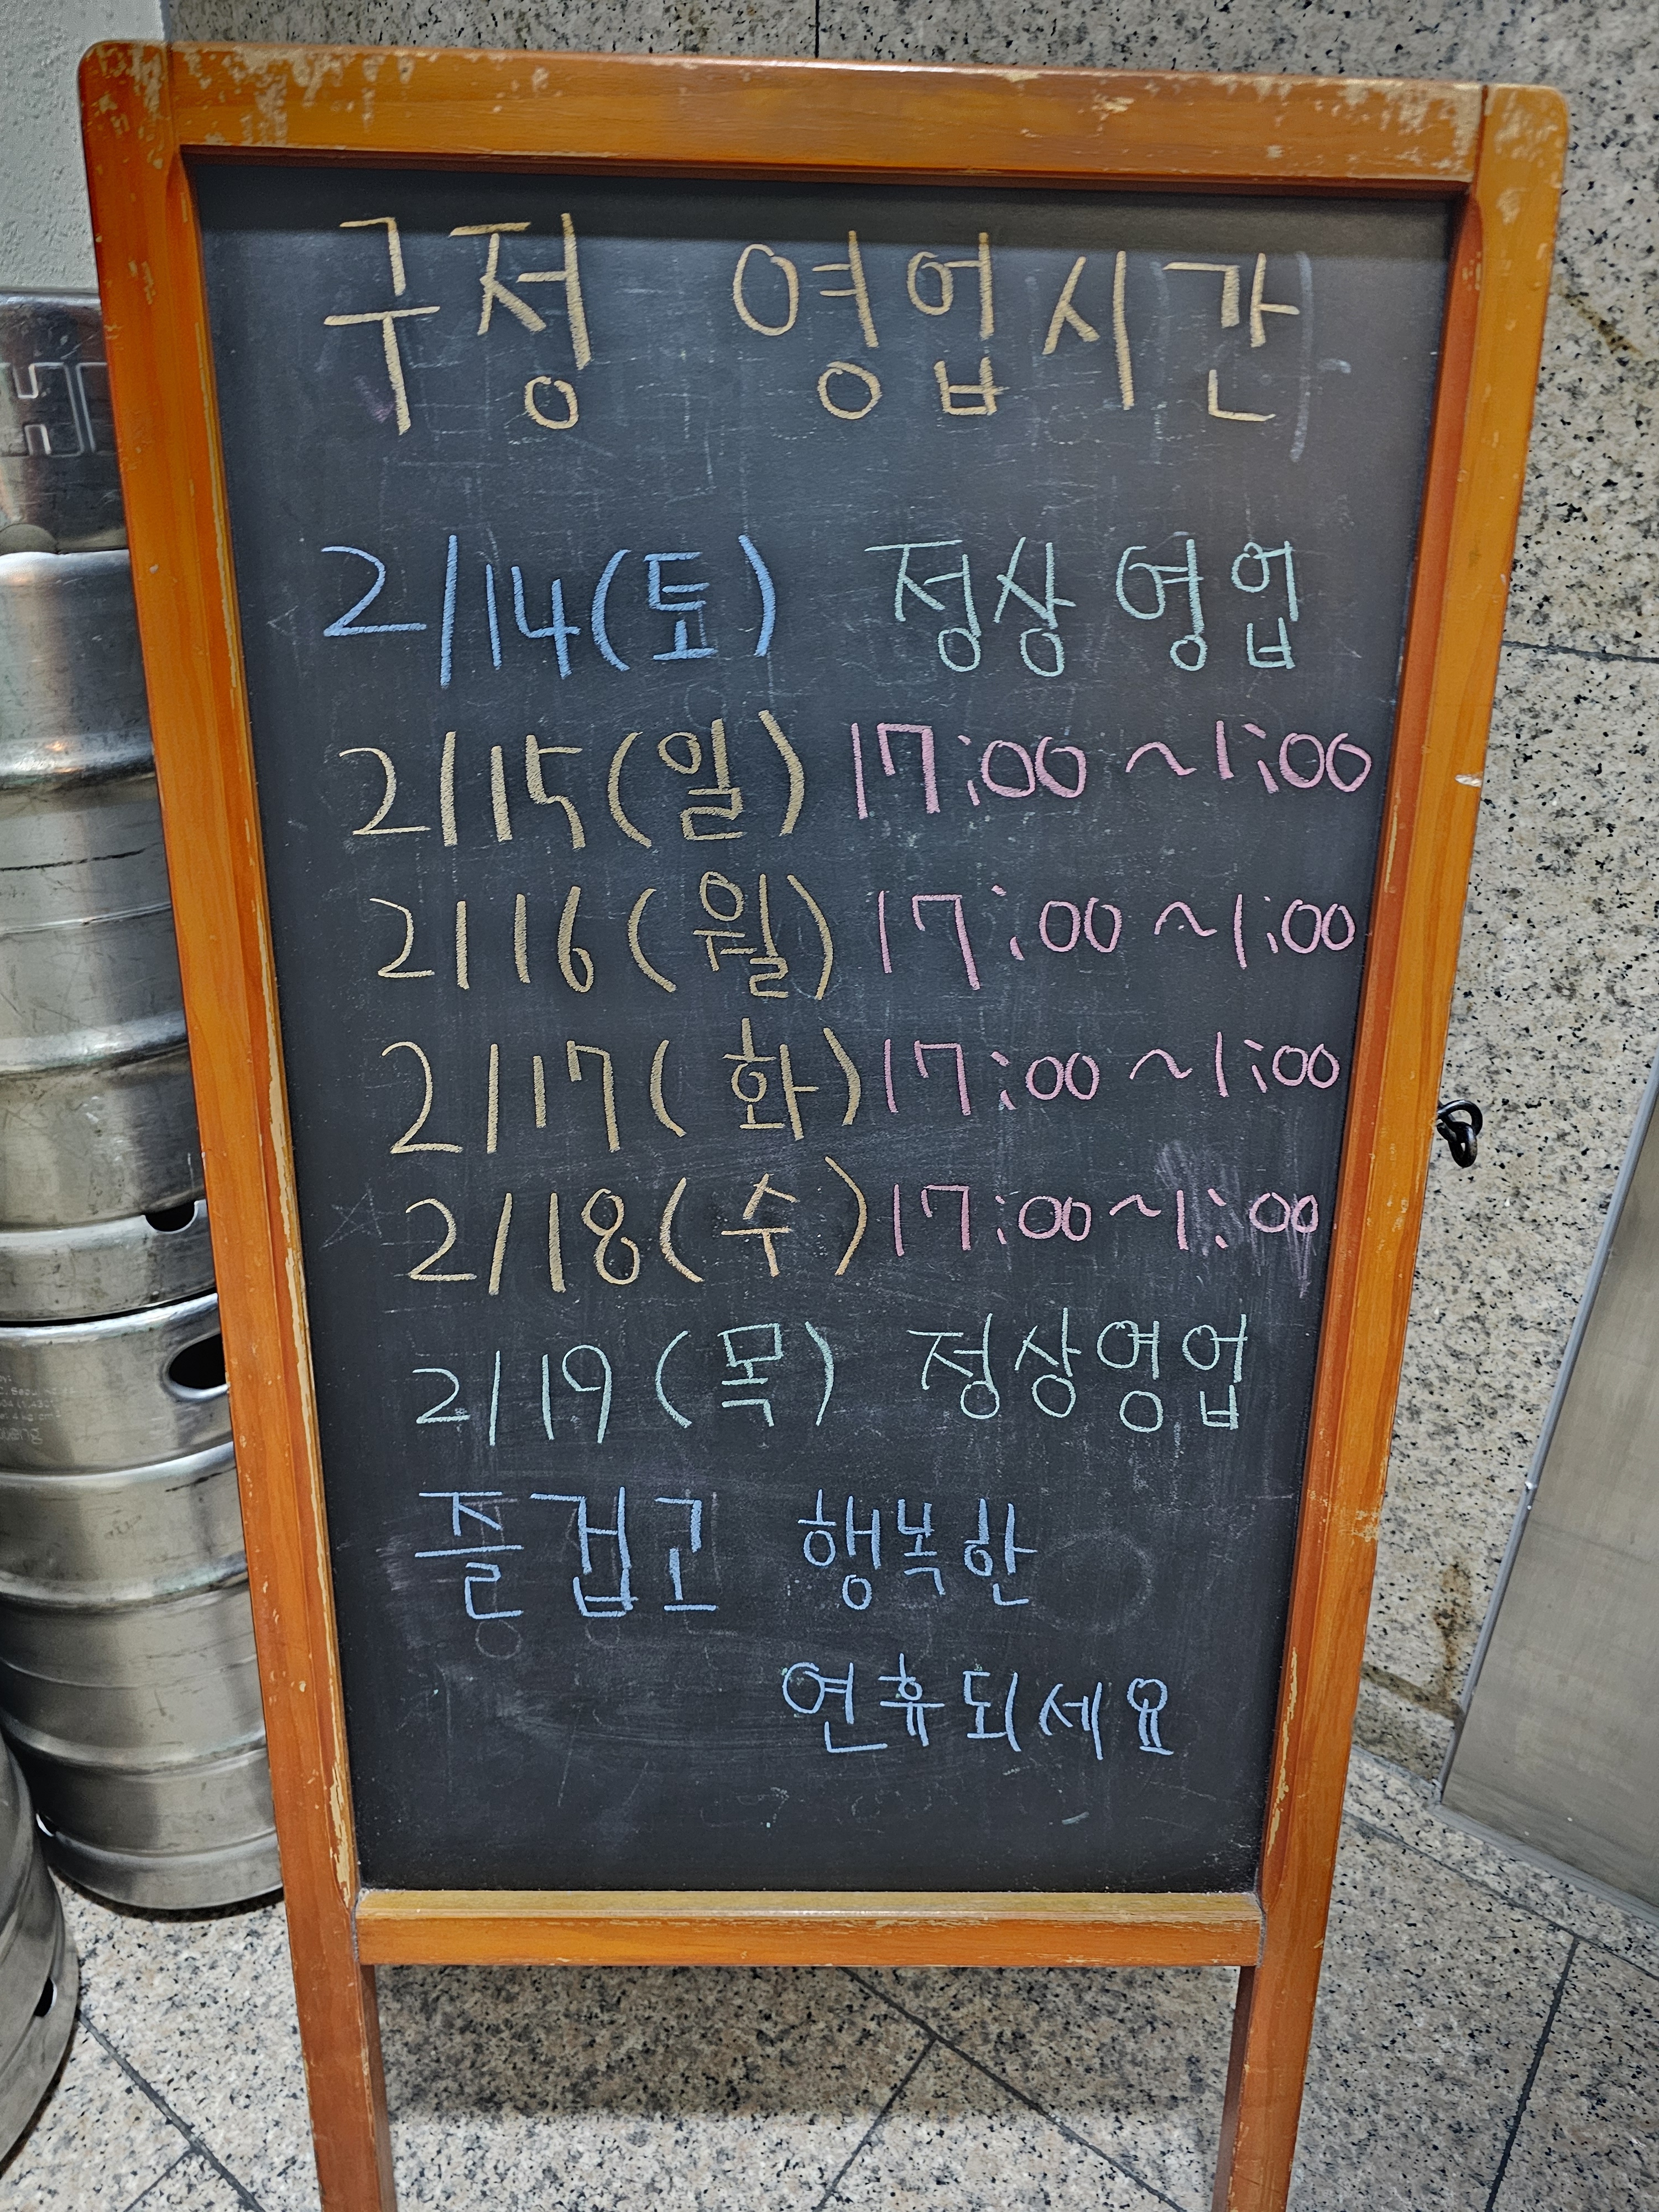 구정 영업시간
2/14(토) 정상영업
2/15(일) 17:00~1:00
2/16(월) 17:00~1:00
2/17(화) 17:00~1:00
2/18(수) 17:00~1:00
2/19(목) 정상영업
즐겁고 행복한
연휴되세요